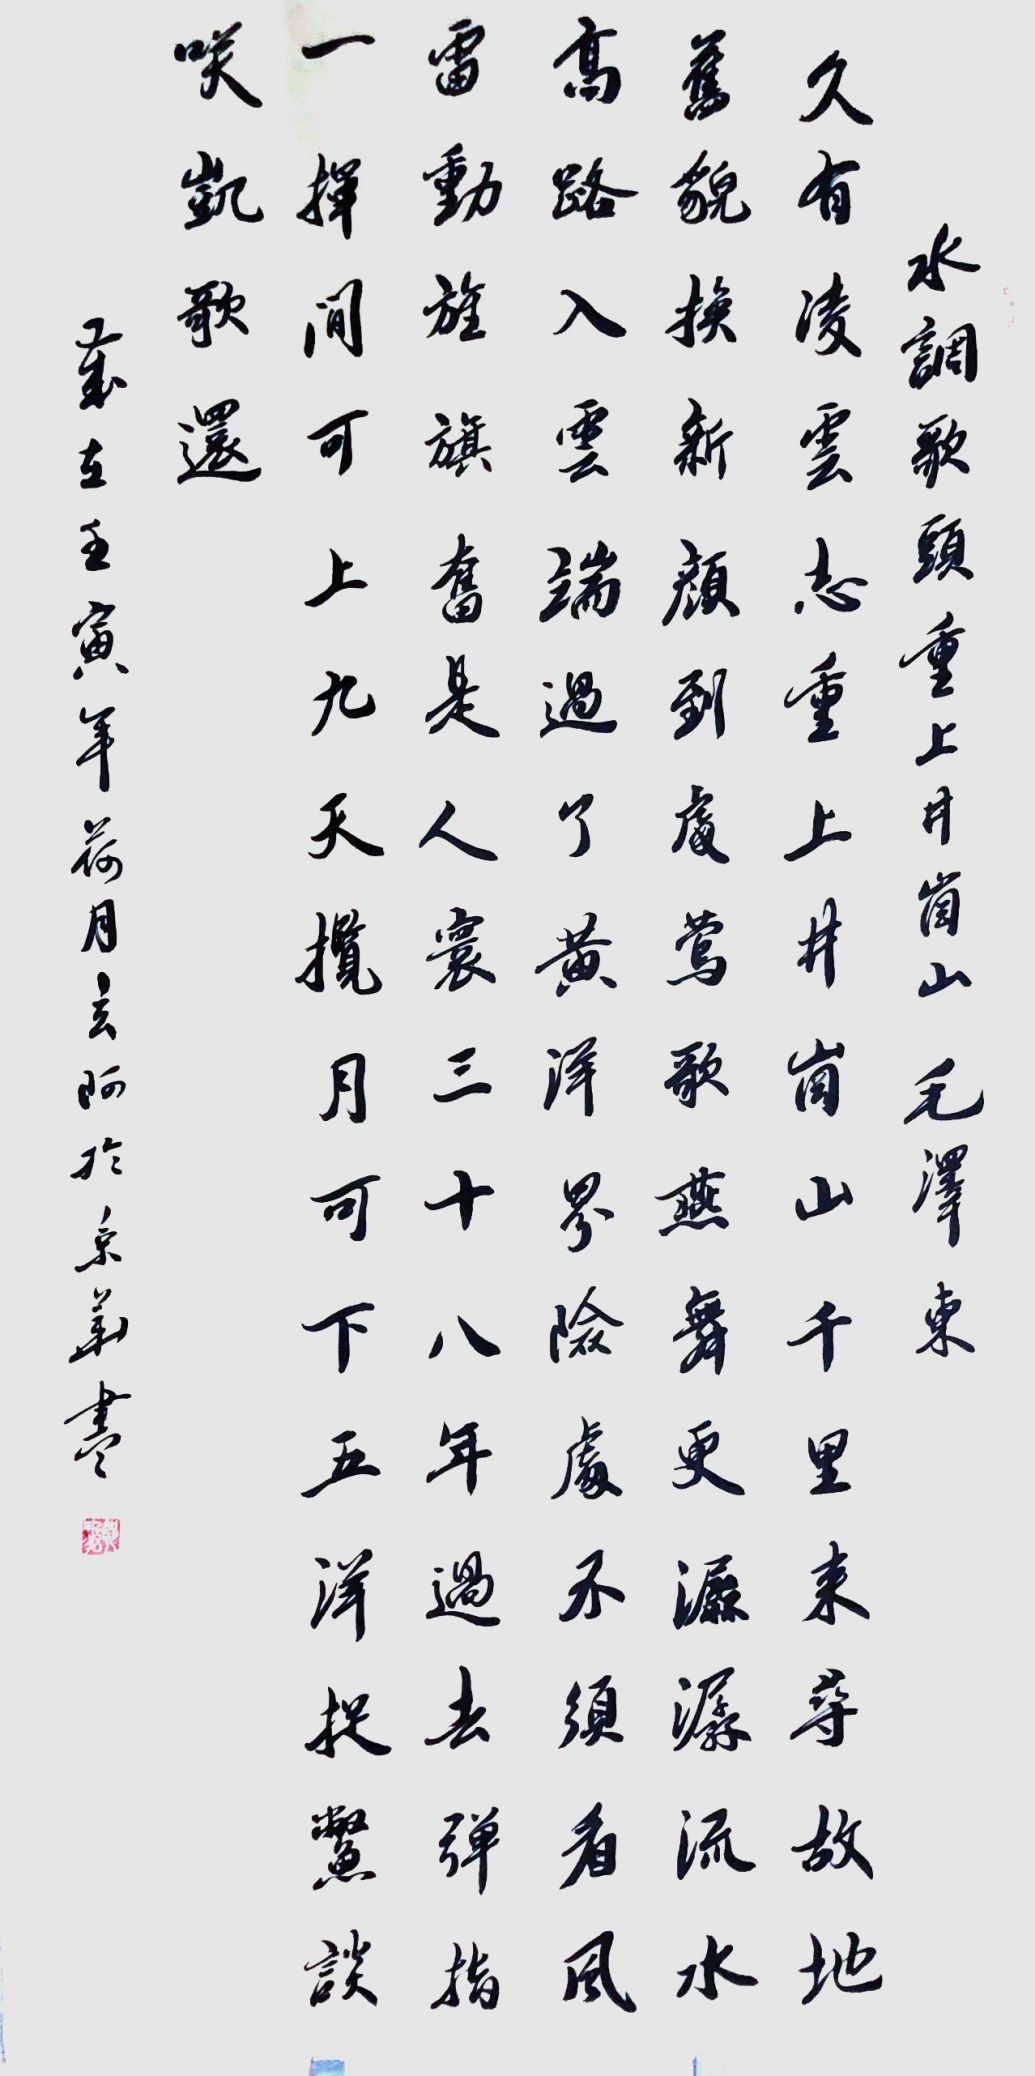 水調歌頭重上井崗山 毛澤東
久有凌雲志重上井崗山千里来尋故地
舊貌換新顔到處莺歌燕舞更潺潺流水
高路入雲端過了黄洋界險處不須看風
雷動旌旗奮是人寰三十八年過去弹指
一揮间可上九天攬月可下五洋捉鱉談
咲凱歌還
歲在壬寅年荷月玄阿於京華書